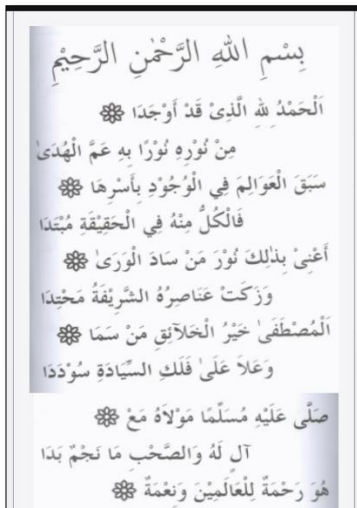 بِسْمِ اللهِ الرَّحْمٰنِ الرَّحِيْمِ
اَلْحَمْدُ لِلهِ الَّذِىْ قَدْ أَوْجَدَا
مِنْ نُوْرِهِ نُوْرًا بِهِ عَمَّ الْهُدَىٰ
سَبَقَ الْعَوَالِمَ فِي الْوُجُوْدِ بِأَسْرِهَا
فَالْكُلُّ مِنْهُ فِي الْحَقِيْقَةِ مُبْتَدَا
أَعْنِىْ بِذٰلِكَ نُوْرَ مَنْ سَادَ الْوَرَىٰ
وَزَكَتْ عَنَاصِرُهُ الشَّرِيْفَةُ مَحْتِدَا
اَلْمُصْطَفَىٰ خَيْرُ الْخَلَآئِقِ مَنْ سَمَا
وَعَلاَ عَلَىٰ فَلَكِ السِّيَادَةِ سُوْدَدَا
صَلَّى عَلَيْهِ مُسَلِّمًا مَوْلَاهُ مَعْ
آلٍ لَهُ وَالصَّحْبِ مَا نَجْمٌ بَدَا
هُوَ رَحْمَةٌ لِلْعَالَمِيْنَ وَنِعْمَةٌ